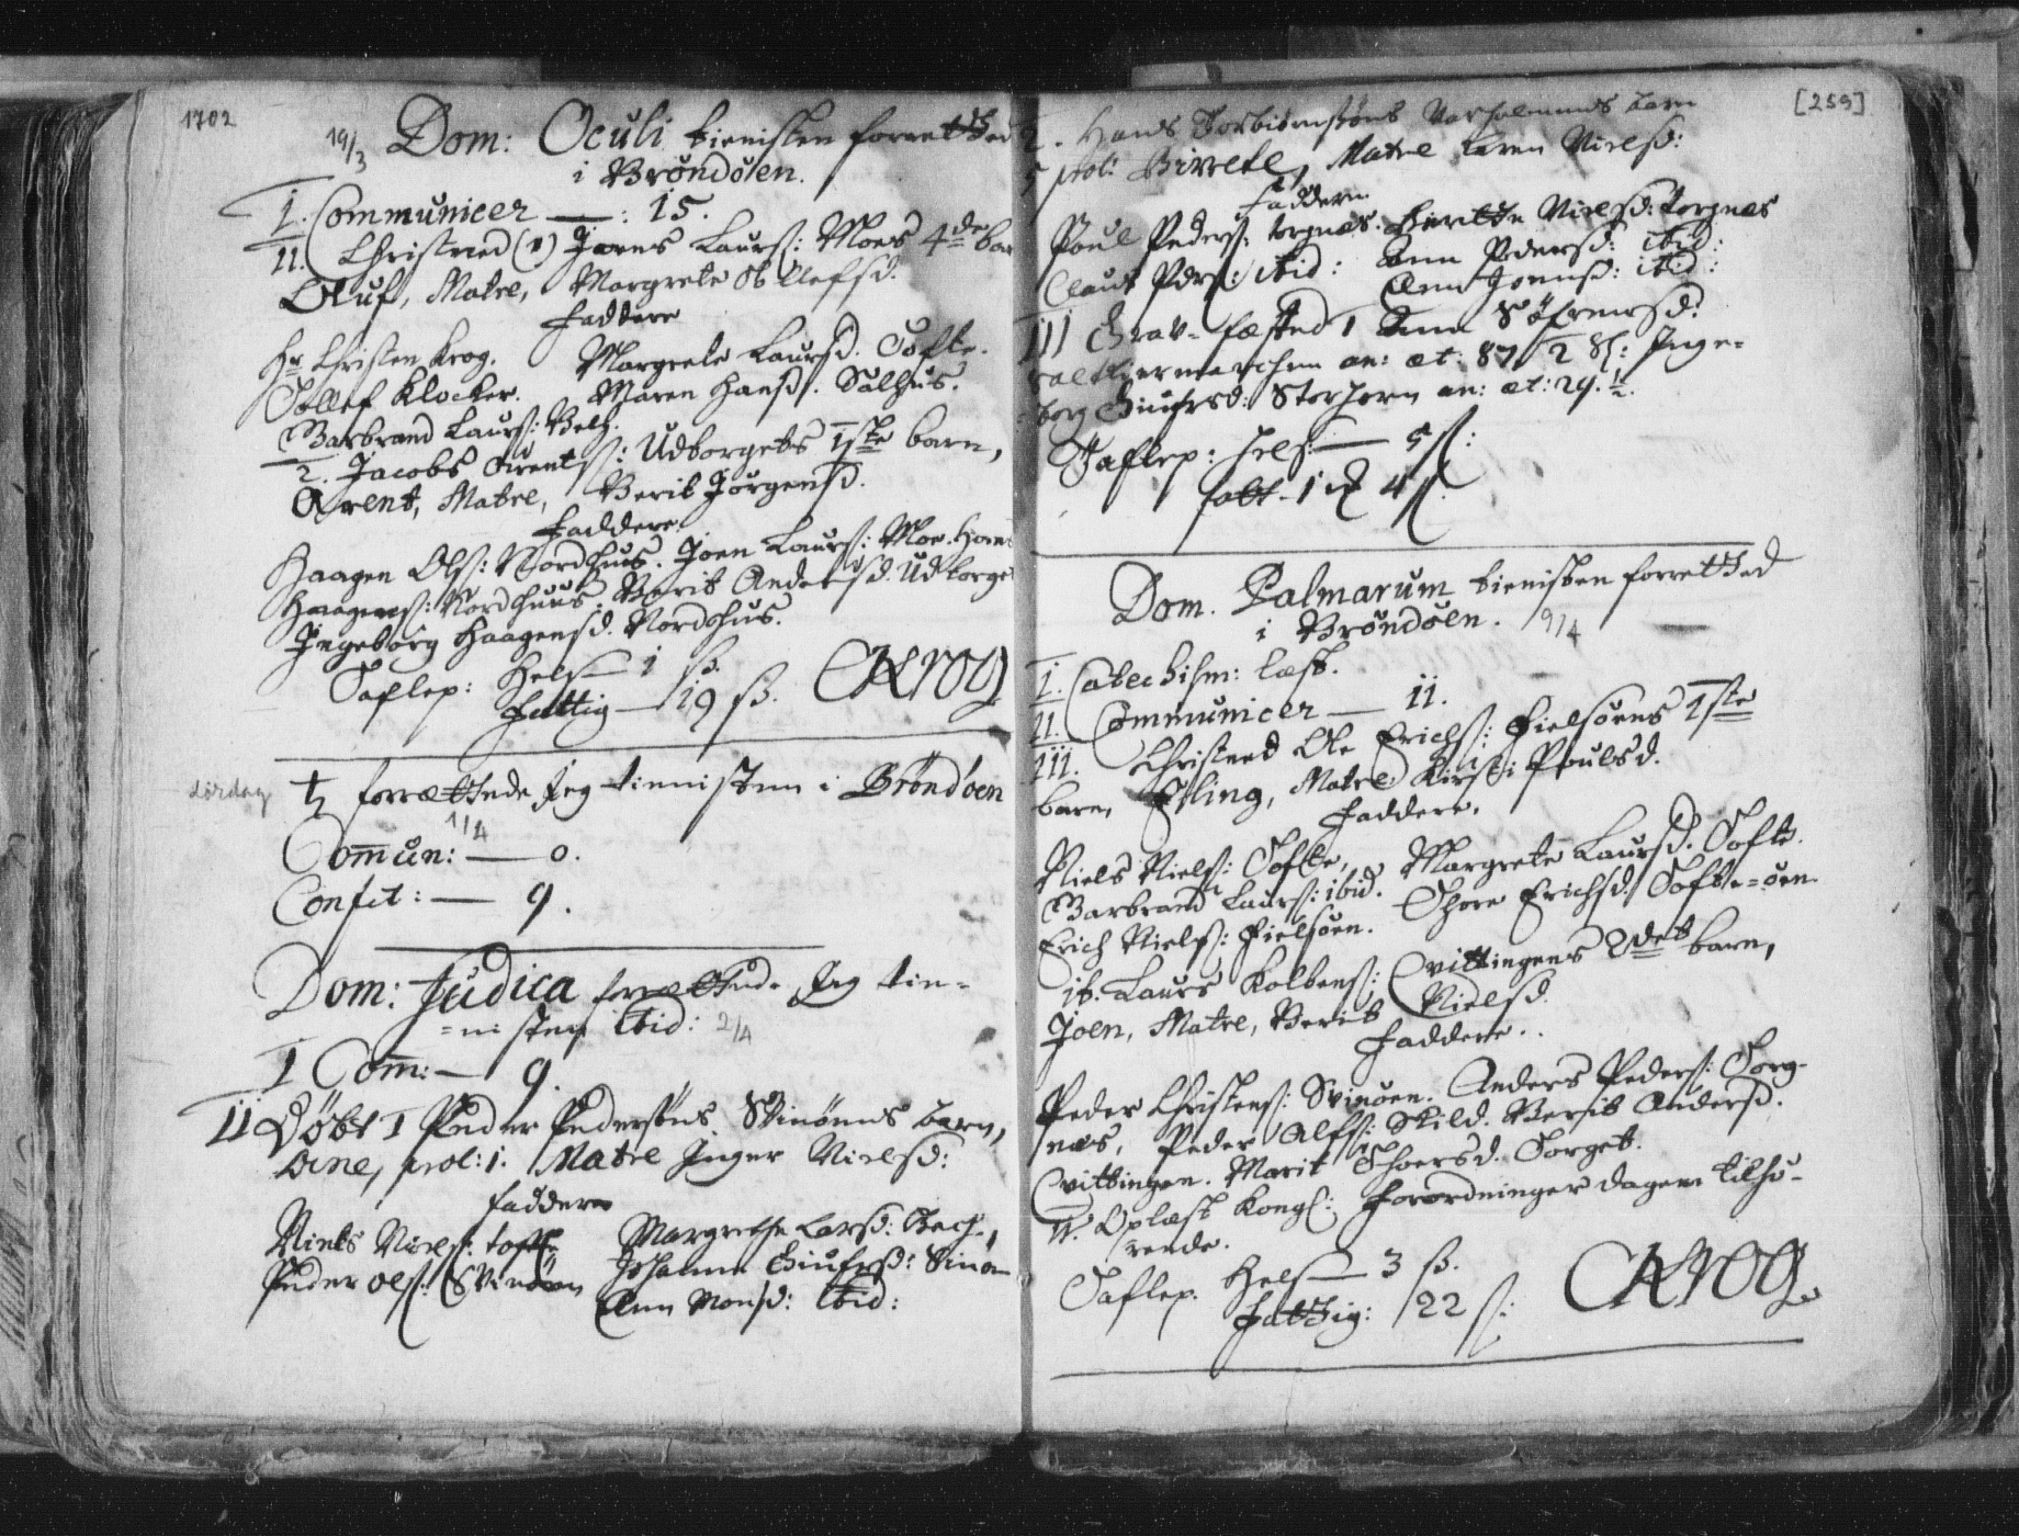 1702
19/3 Dom: Oculi tienisten forretted
i Brøndøen.
I. Communicer —: 15.
II. Christned (1) Jøns Laurs: Moes 4de bar
Oluf, Matre, Margrete Ollefsd.
Faddere
Hr Christen Krog. Margrete Laursd. Tofte.
Tollef Klocker. Maren Hansd. Salhus.
Barbrand Laurs:
2. Jacobs Arents: Udborgets 1ste barn,
Arent, Matre, Berit Jørgensd.
Faddere.
Haagen Ols: Nordhuus. Joen Laurs: Moe. Hans
Haagens: Nordhuus. Berit Andersd. Udtorge
Ingeborg Haagensd. Nordhus.
Taflep: Hels — 1 ß.
Fattig — 19 ß. CKrog
Lørdag ♄ forrættede Jeg tienisten i Brøndøen
1/4
Comun: — 0.
Confit: — 9.
Dom: Judica forrættede Jeg tie-
=nisten ibid: 2/4
I Com: — 9.
II Døbt 1 Peder Pedersøns Svinøens barn,
prol: 1. Matre Inger Nielsd:
Faddere
Niels Niels: tofte Margrethe Larsd:
Peder Ols: Svinøen Johanna
Ann Monsd: ibid:
[259]
2. Hans Torbiørnsøns barn
5 prol: Birrete, Matre Karen Nielsd:
Faddere
Poul Peders: torgnæs. Nielsd: torgnæs
Claus Pders: ibid: Ann Pedersd: ibid:
Ann Jonsd: ibid:
III Grav-fæsted 1 Ann Søfrensd:
an: æt: 87 / 2 Sl: Inge-
borg Storhorn an: æt: 29. ½.
Taflep: Hels: — 5 ß:
fatt - 1 4 ß.
Dom. Palmarum tienisten forretted
i Brøndøen. 9/4
I. Catechism: læst.
II. Communicer — 11.
III. Christned Ole Erichs: Fielsøens 1ste
barn, Esling, Matre Kirsti Poulsd.
Faddere.
Niels Niels: Tofte, Margrete Laursd. Tofte.
Barbrand Laurs: ibid. Thore Erichsd. Tofte=øen.
Erich Niels: Fielsøen.
it. Laurs Kolbens: Qvittingens 2det barn,
Joen, Matre, Berit Nielsd.
Faddere.
Peder Christens: Svinøen. Anders Peders: Torg-
næs, Peder Alfs: Skild. Berit Andersd.
Qvittingen. Marit Thoersd. Torget.
IV. Oplæst Kongl: Forordninger dagen tilhø-
rende.
Taflep. Hels — 3 ß.
Fattig: 22 ß: CKrog.